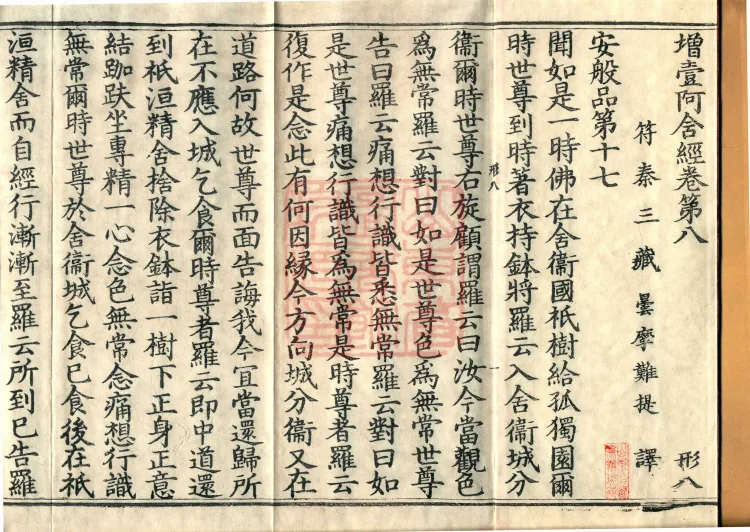 增壹阿含經卷第八 形八
符秦三藏曇摩難提 譯
安般品第十七
聞如是一時佛在舍衞國祇樹給孤獨園爾
時世尊到時著衣持鉢將羅云入舍衞城分
形八 一
衞爾時世尊右旋顧謂羅云曰汝今當觀色
爲無常羅云對曰如是世尊色爲無常世尊
告曰羅云痛想行識皆悉無常羅云對曰如
是世尊痛想行識皆爲無常是時尊者羅云
復作是念此有何因緣今方向城分衞又在
道路何故世尊而面告誨我今宜當還歸所
在不應入城乞食爾時尊者羅云即中道還
到祇洹精舍捨除衣鉢詣一樹下正身正意
結跏趺坐專精一心念色無常念痛想行識
無常爾時世尊於舍衞城乞食已食後在祇
洹精舍而自經行漸漸至羅云所到已告羅